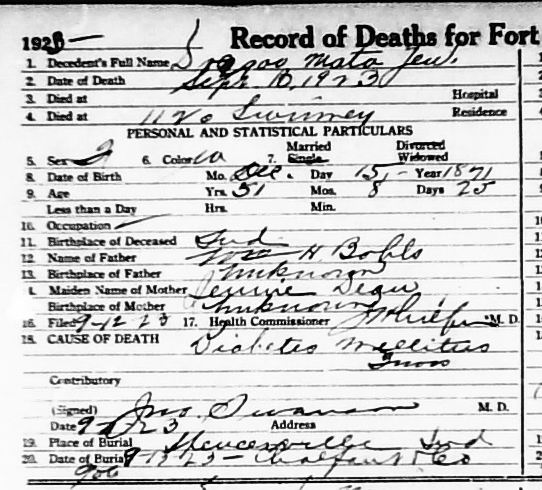 1923 — Record of Deaths for Fort
1. Decedent's Full Name Mata
2. Date of Death Sept. 10, 1923
3. Died at Hospital
4. Died at Swinney Residence
PERSONAL AND STATISTICAL PARTICULARS
Married Divorced
5. Sex 6. Color W 7. Single Widowed
8. Date of Birth Mo. Dec. Day 15, - Year 1871
9. Age Yrs. 51 Mos. 8 Days 25
Less than a Day Hrs. Min.
10. Occupation
11. Birthplace of Deceased Ind
12. Name of Father Wm H Bohls
13. Birthplace of Father Unknown
Maiden Name of Mother Jennie Dean
Birthplace of Mother Unknown
16. Filed 9-12-23 17. Health Commissioner M. D.
18. CAUSE OF DEATH Diabetes Mellitus
Contributory
(Signed) Jno. Swanson M. D.
Date 23 Address
19. Place of Burial Ind
20. Date of Burial 23 — Chalfant & Co